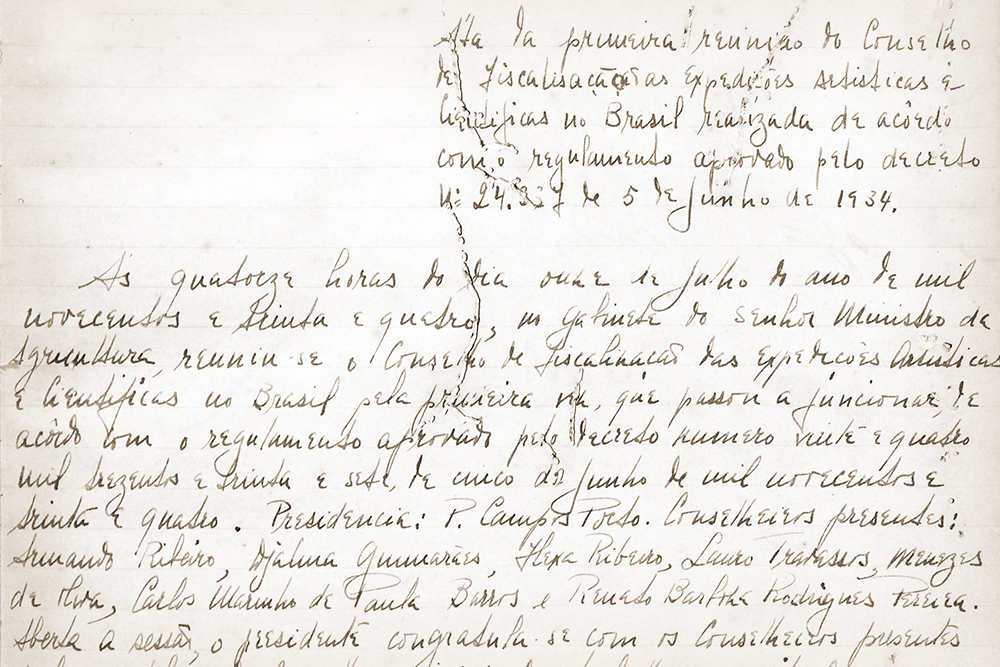 Ata da primeira reunião do Conselho
de Fiscalisação das Expedições Artisticas e
Cientificas no Brasil realizada de acôrdo
com o regulamento aprovado pelo decreto
N: 24.337 de 5 de Junho de 1934.
As quatorze horas do dia onze de Julho do ano de mil
novecentos e trinta e quatro, no Gabinete do Senhor Ministro da
Agricultura, reuniu-se o Conselho de Fiscalisação das Expedições Artisticas
e Cientificas no Brasil pela primeira vez, que passou a funcionar, de
acôrdo com o regulamento aprovado pelo decreto numero vinte e quatro
mil trezentos e trinta e sete, de cinco de Junho de mil novecentos e
trinta e quatro. Presidencia: P. Campos Porto. Conselheiros presentes:
Armando Ribeiro, Djalma Guimarães, Ribeiro, Lauro Travassos, Menezes
de Oliva, Carlos Marinho de Paula Barros e Renato Rodrigues Pereira.
Aberta a sessão, o presidente congratula-se com os Conselheiros presentes